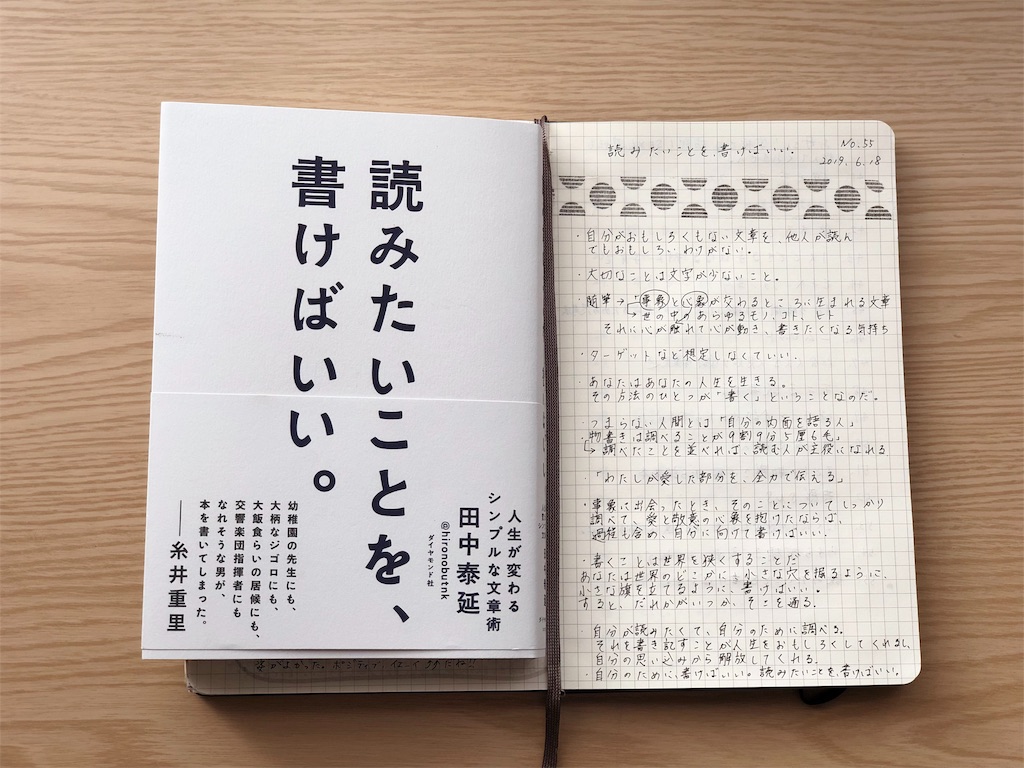 読みたいことを、
書けばいい。
人生が変わる
シンプルな文章術
田中泰延
@hironobutnk
ダイヤモンド社
幼稚園の先生にも、
大柄なジゴロにも、
大飯食らいの居候にも、
交響楽団指揮者にも
なれそうな男が、
本を書いてしまった。
──糸井重里
No.55
読みたいことを、書けばいい。
2019.6.18
・自分がおもしろくもない文章を、他人が読ん
でもおもしろいわけがない。
・大切なことは文字が少ないこと。
・随筆→「事象と心象が交わるところに生まれる文章
↳世の中のあらゆるモノ、コト、ヒト
それに心が触れて心が動き、書きたくなる気持ち
・ターゲットなど想定しなくていい。
・あなたはあなたの人生を生きる。
その方法のひとつが「書く」ということなのだ。
・つまらない人間とは「自分の内面を語る人」
「物書きは調べることが9割9分5厘6毛」
↳調べたことを並べれば、読む人が主役になれる
・「わたしが愛した部分を、全力で伝える」
・事象に出会ったとき、そのことについてしっかり
調べて、愛と敬意の心象を抱けたならば、
過程も含め、自分に向けて書けばいい。
・書くことは世界を狭くすることだ
あなたは世界のどこかに、小さな穴を掘るように、
小さな旗を立てるように、書けばいい。
すると、だれかがいつか、そこを通る。
・自分が読みたくて、自分のために調べる。
それを書き記すことが人生をおもしろくしてくれるし、
自分の思い込みから解放してくれる。
・自分のために書けばいい。読みたいことを、書けばいい。